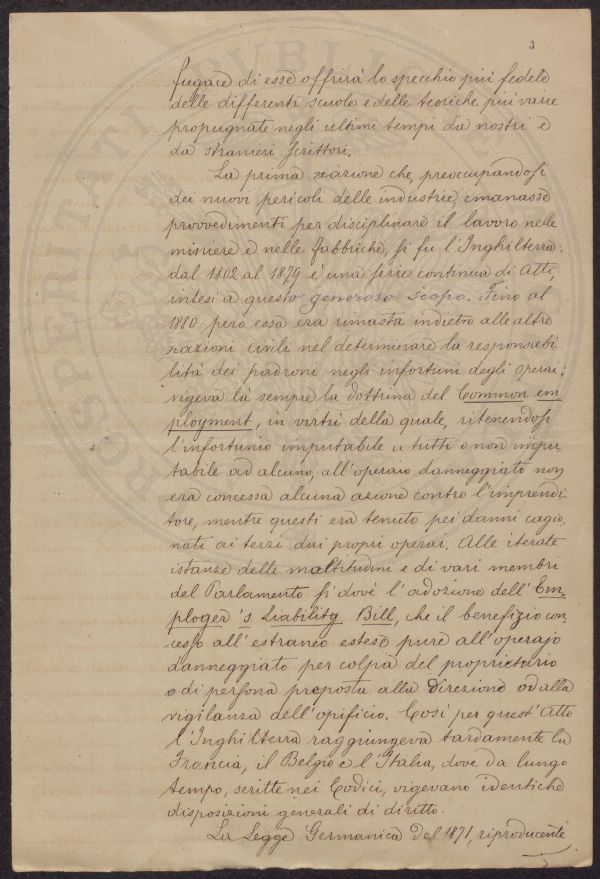 3
fugace di esse offrirà lo specchio più fedele
delle differenti scuole e delle teoriche più varie
propugnate negli ultimi tempi da nostri e
da stranieri scrittori.
La prima nazione che, preoccupandosi
dei nuovi pericoli delle industrie, emanasse
provvedimenti per disciplinare il lavoro nelle
miniere e nelle fabbriche, si fu l'Inghilterra:
dal 1802 al 1879 è una serie continua di Atti,
intesi a questo generoso scopo. Fino al
1880 però essa era rimasta indietro alle altre
nazioni civili nel determinare la responsabi
lità dei padroni negli infortuni degli operai;
vigeva là sempre la dottrina del Common em
ployment, in virtù della quale, ritenendosi
l'infortunio imputabile a tutti o non impu
tabile ad alcuno, all'operaio danneggiato non
era concessa alcuna azione contro l'imprendi-
tore, mentre questi era tenuto pei danni cagio-
nati ai terzi dai propri operai. Alle iterate
istanze delle moltitudini e di vari membri
del Parlamento si dovè l'adozione dell'Em-
ployer's Liability Bill, che il benefizio con-
cesso all'estraneo estese pure all'operajo
danneggiato per colpa del proprietario
o di persona preposta alla direzione od alla
vigilanza dell'opificio. Così per quest'Atto
l'Inghilterra raggiungeva tardamente la
Francia, il Belgio e l'Italia, dove da lungo
tempo, scritte nei Codici, vigevano identiche
disposizioni generali di diritto.
La Legge Germanica del 1871, riproducente
PROSPERITATI PUBLICAE